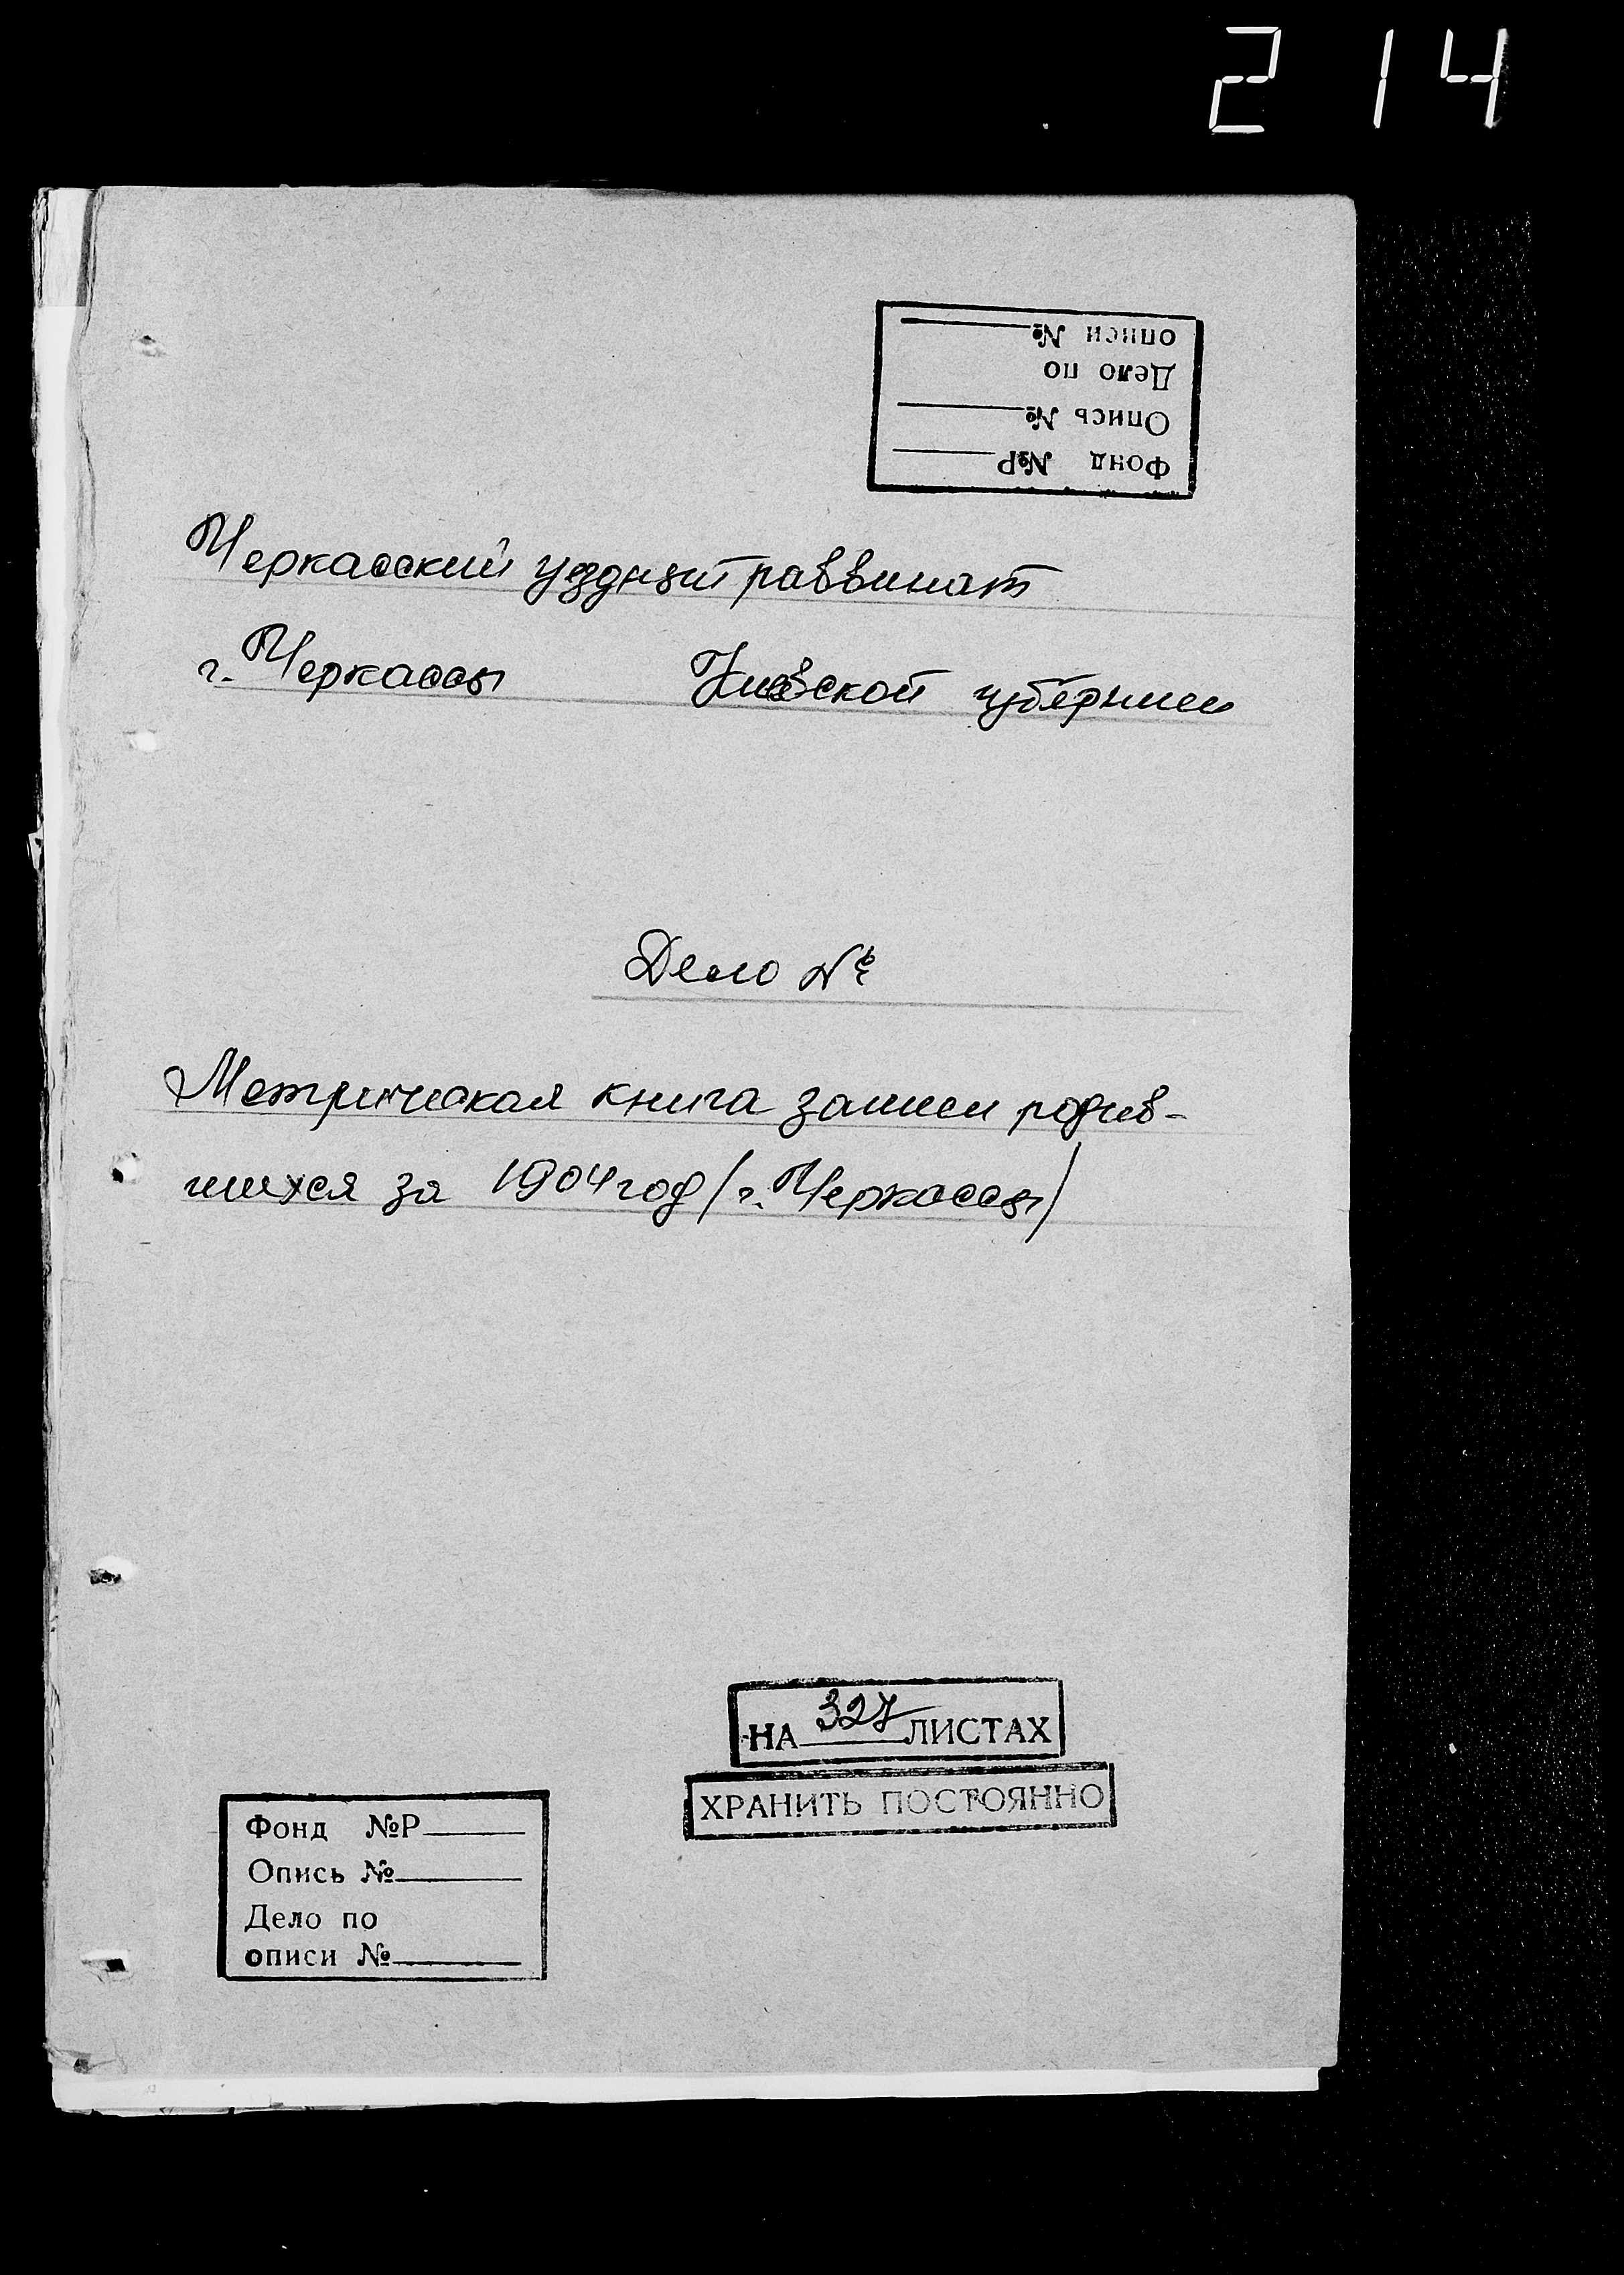 2 14
Фонд №Р
Опись №
Дело по
описи №
Черкасский уездный раввинат
г. Черкассы Киевской губернии
Дело №
Метрическая книга записи родив-
шихся за 1904 год /г. Черкассы/
НА 327 ЛИСТАХ
ХРАНИТЬ ПОСТОЯННО
Фонд №Р
Опись №
Дело по
описи №